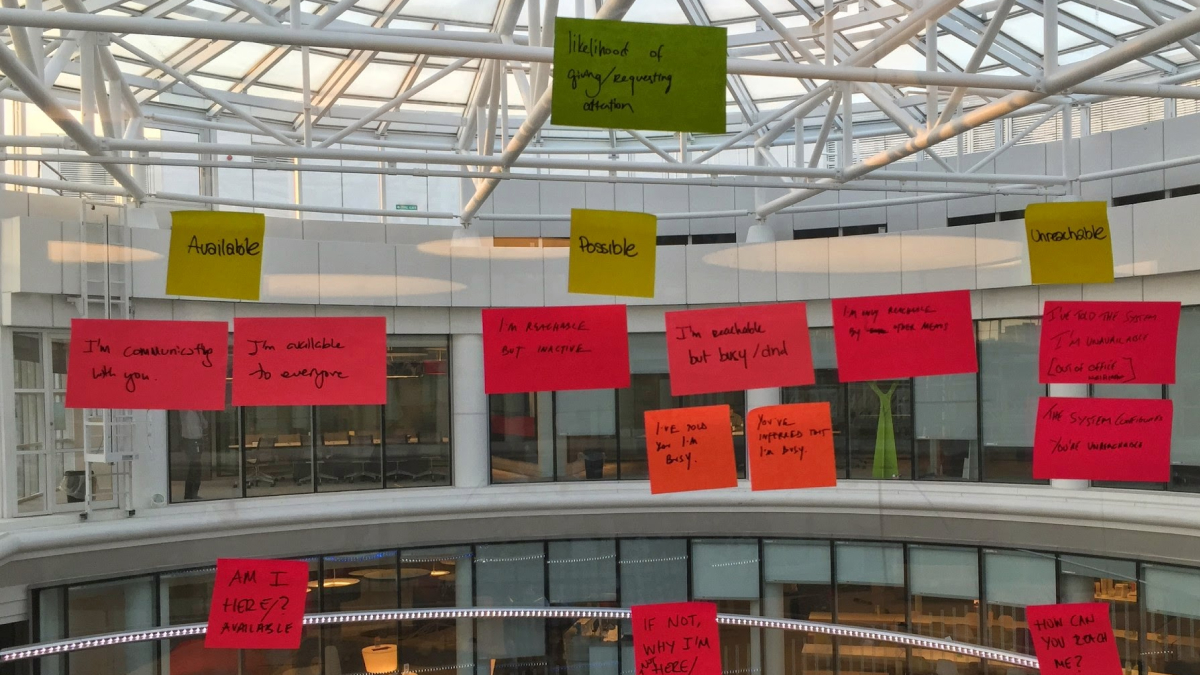 likelihood of
giving/requesting
attention
Available
Possible
Unreachable
I'm communicating
with you.
I'm available
to everyone
I'M REACHABLE
BUT INACTIVE
I'm reachable
but busy/dnd
I'M ONLY REACHABLE
BY OTHER MEANS
I'VE TOLD THE SYSTEM
I'M UNAVAILABLE
[OUT OF OFFICE
I'VE TOLD
YOU I'M
BUSY.
YOU'VE
INFERRED THAT
I'M BUSY.
THE SYSTEM CONFIGURES
YOU'RE UNREACHABLE
AM I
HERE/?
AVAILABLE
IF NOT,
WHY I'M
NOT HERE/
HOW CAN
YOU REACH
ME?